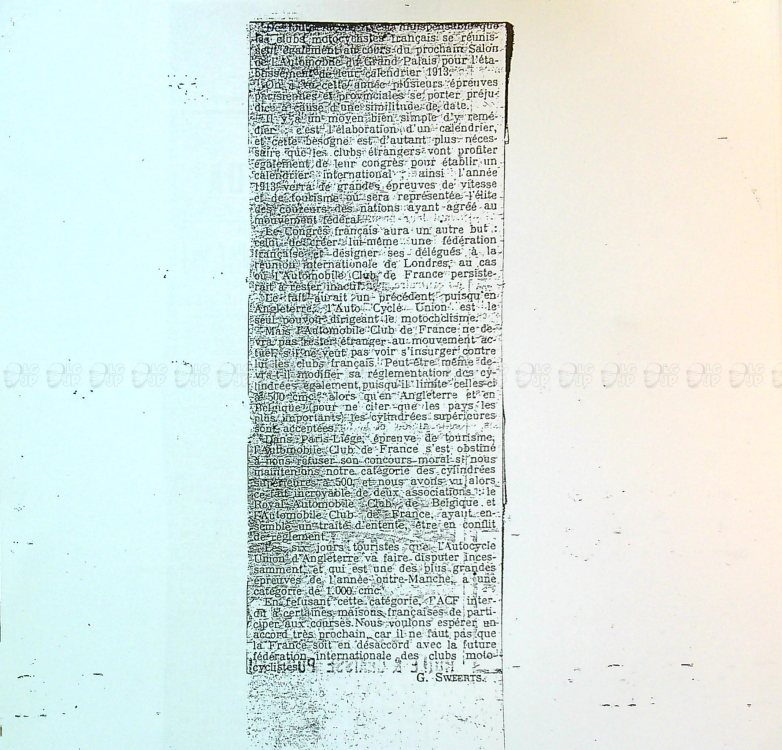 De toute façon, il est indispensable que
les clubs motocyclistes français se réunis-
sent également au cours du prochain Salon
de l'Automobile du Grand Palais pour l'éta-
blissement de leur calendrier 1913.
On a vu cette année plusieurs épreuves
parisiennes et provinciales se porter préju-
dice à cause d'une similitude de date.
Il y a un moyen bien simple d'y remé-
dier : c'est l'élaboration d'un calendrier,
et cette besogne est d'autant plus néces-
saire que les clubs étrangers vont profiter
également de leur congrès pour établir un
calendrier international ; ainsi l'année
1913 verra de grandes épreuves de vitesse
et de tourisme où sera représentée l'élite
des coureurs des nations ayant agréé au
mouvement fédéral.
Le Congrès français aura un autre but :
celui de créer lui-même une fédération
française et désigner ses délégués à la
réunion internationale de Londres, au cas
où l'Automobile Club de France persiste-
rait à rester inactif.
Le fait aurait un précédent, puisqu'en
Angleterre, l'Auto Cycle Union est le
seul pouvoir dirigeant le motocyclisme.
Mais l'Automobile Club de France ne de-
vra pas rester étranger au mouvement ac-
tuel, s'il ne veut pas voir s'insurger contre
lui les clubs français. Peut-être même de-
vra-t-il modifier sa réglementation des cy-
lindrées également, puisqu'il limite celles-ci
à 500 cmc. alors qu'en Angleterre et en
Belgique (pour ne citer que les pays les
plus importants) les cylindrées supérieures
sont acceptées.
Dans Paris-Liége, épreuve de tourisme,
l'Automobile Club de France s'est obstiné
à nous refuser son concours moral si nous
maintenions notre catégorie des cylindrées
supérieures à 500, et nous avons vu alors
ce fait incroyable de deux associations : le
Royal Automobile Club de Belgique et
l'Automobile Club de France, ayant en-
semble un traité d'entente, être en conflit
de règlement.
Les six jours touristes que l'Autocycle
Union d'Angleterre va faire disputer inces-
samment, et qui est une des plus grandes
épreuves de l'année outre-Manche, a une
catégorie de 1.000 cmc.
En refusant cette catégorie, l'ACF inter-
dit à certaines maisons françaises de parti-
ciper aux courses. Nous voulons espérer un
accord très prochain, car il ne faut pas que
la France soit en désaccord avec la future
fédération internationale des clubs moto-
cyclistes.
G. SWEERTS.